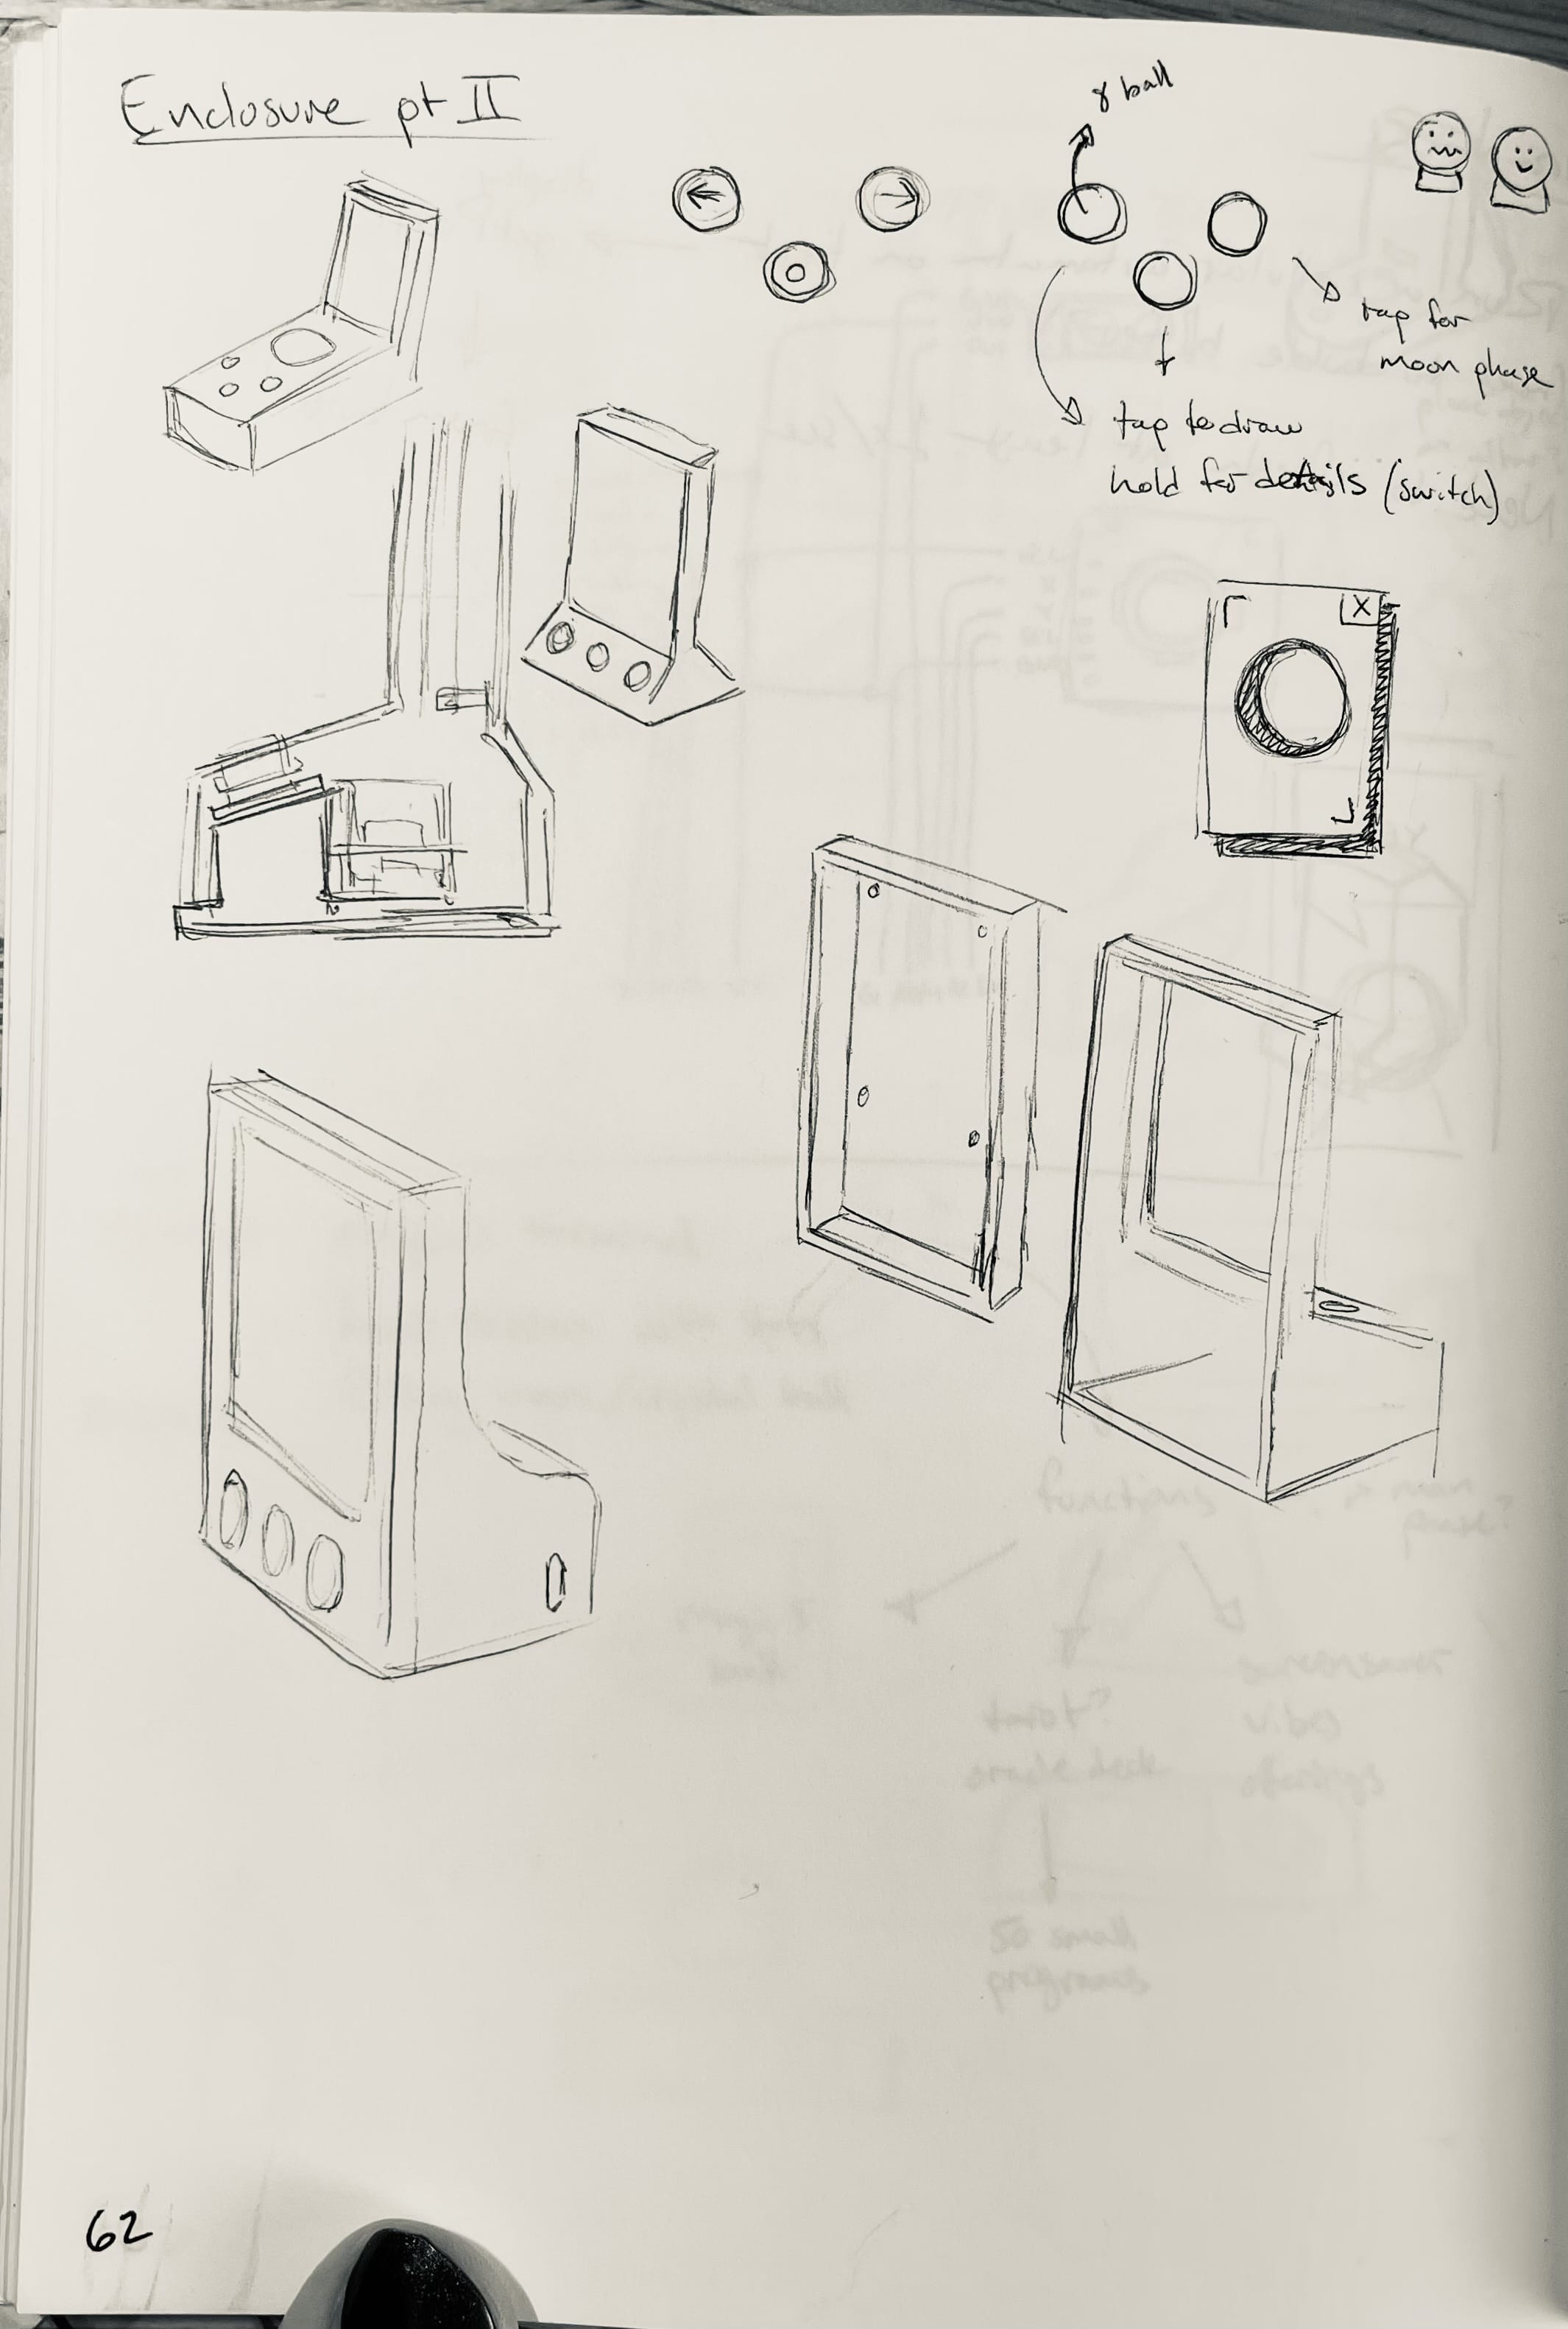 Enclosure pt II
8 ball
tap for
moon phase
tap to draw
hold for details (switch)
X
62